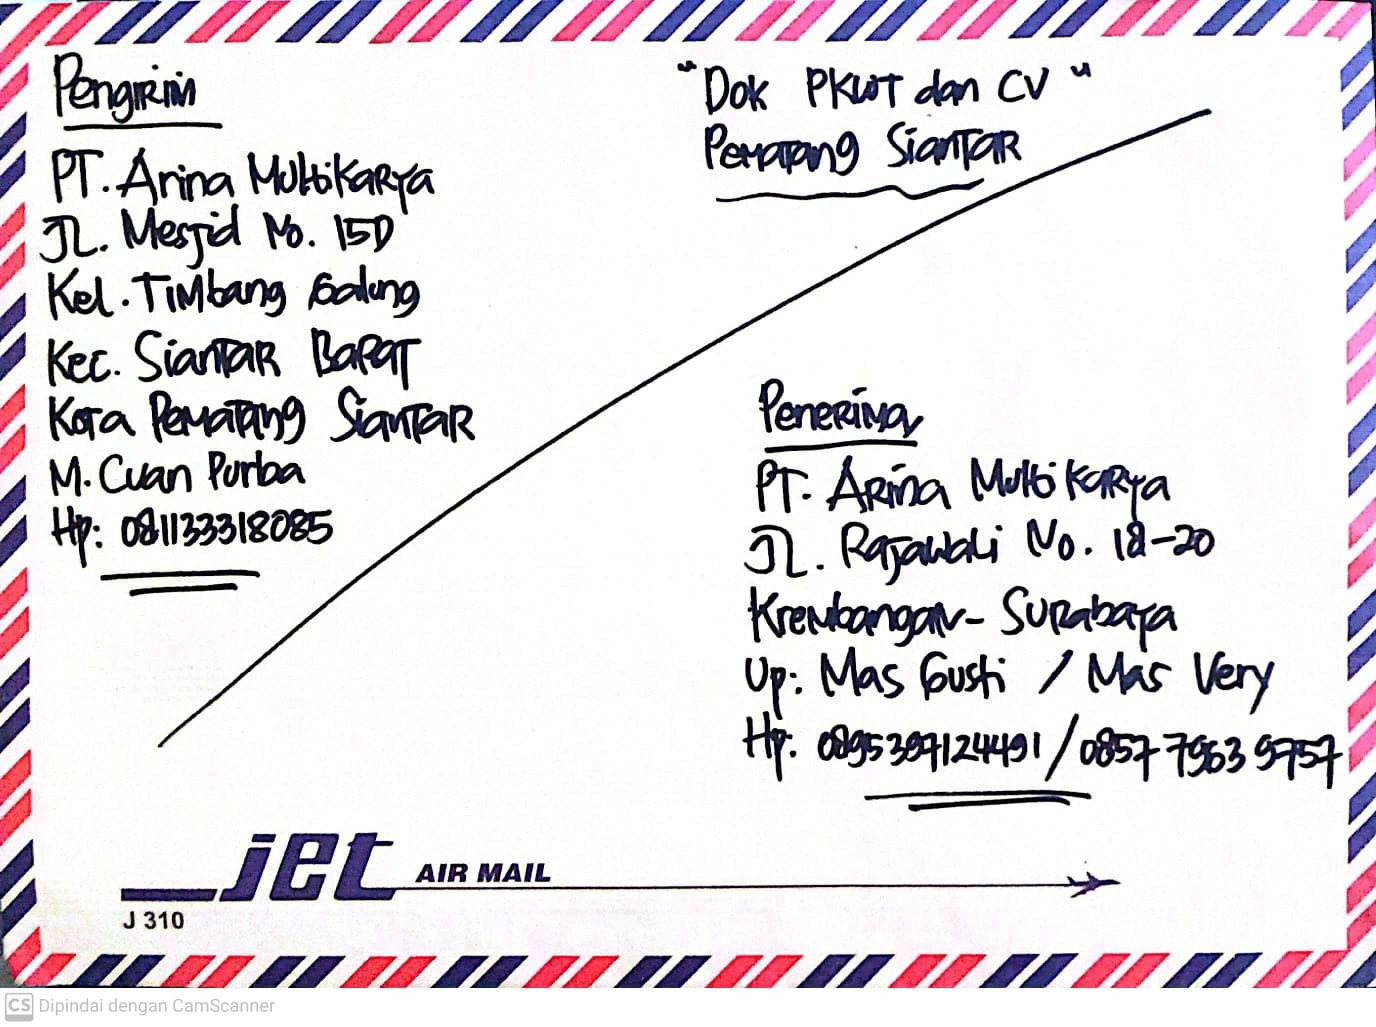 Pengirim
PT. Arina Multikarya
JL. Mesjid No. 15D
Kel. Timbang Galung
Kec. Siantar Barat
Kota Pematang Siantar
M. Cuan Purba
Hp: 081133318085
"Dok PKWT dan CV"
Pematang Siantar
Penerima
PT. Arina Multi Karya
JL. Rajawali No. 18-20
Krembangan - Surabaya
Up: Mas Gusti / Mas Very
Hp. 0895397124491 / 0857 7963 9757
jet AIR MAIL
J 310
CS Dipindai dengan CamScanner